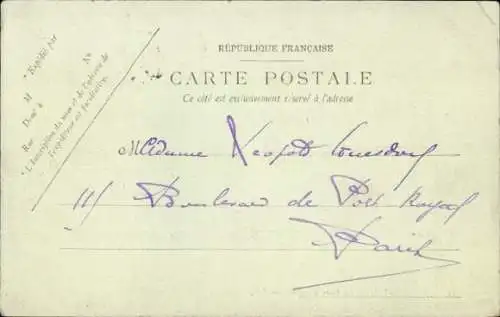 * Expédié par
M
Demt à
Rue N°
* L'inscription du nom et de l'adresse de
l'expéditeur est facultative.
RÉPUBLIQUE FRANÇAISE
CARTE POSTALE
Ce côté est exclusivement réservé à l'adresse
Madame Léopold
111 Boulevard de Port Royal
Paris